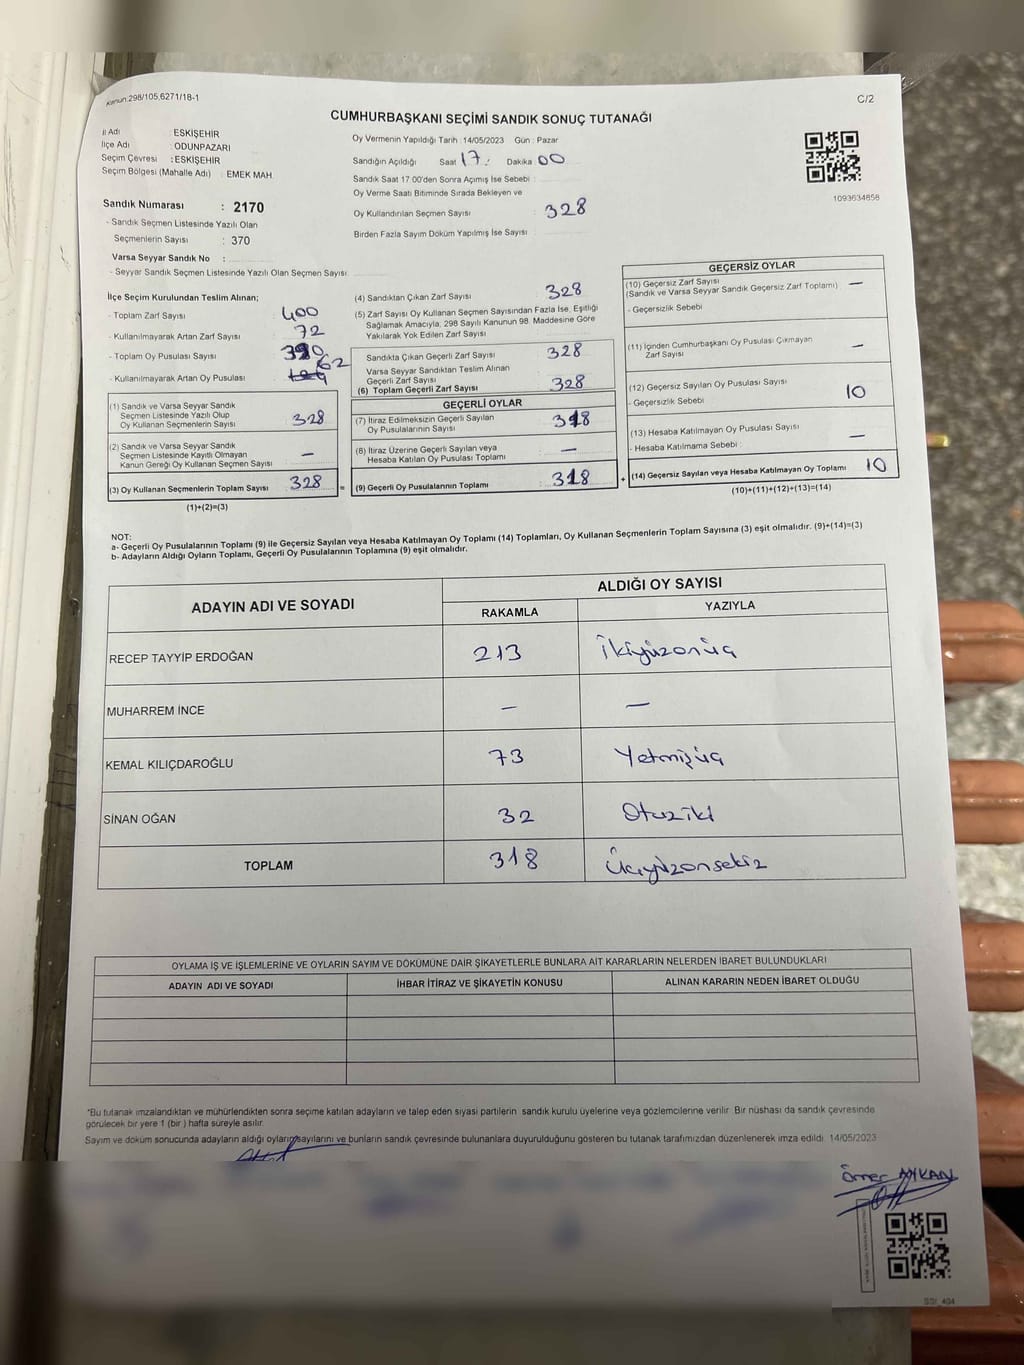 Kanun:298/105,6271/18-1
C/2
CUMHURBAŞKANI SEÇİMİ SANDIK SONUÇ TUTANAĞI
İl Adı : ESKİŞEHİR
İlçe Adı : ODUNPAZARI
Seçim Çevresi : ESKİŞEHİR
Seçim Bölgesi (Mahalle Adı) : EMEK MAH.
Oy Vermenin Yapıldığı Tarih : 14/05/2023 Gün : Pazar
Sandığın Açıldığı Saat 17 : Dakika 00
Sandık Saat 17:00'den Sonra Açımış İse Sebebi :
Oy Verme Saati Bitiminde Sırada Bekleyen ve
Oy Kullandırılan Seçmen Sayısı : 328
Birden Fazla Sayım Döküm Yapılmış İse Sayısı :
1093634858
Sandık Numarası : 2170
- Sandık Seçmen Listesinde Yazılı Olan
Seçmenlerin Sayısı : 370
Varsa Seyyar Sandık No :
- Seyyar Sandık Seçmen Listesinde Yazılı Olan Seçmen Sayısı:
İlçe Seçim Kurulundan Teslim Alınan;
- Toplam Zarf Sayısı : 400
- Kullanılmayarak Artan Zarf Sayısı : 72
- Toplam Oy Pusulası Sayısı : 390
- Kullanılmayarak Artan Oy Pusulası : 62
(1) Sandık ve Varsa Seyyar Sandık
Seçmen Listesinde Yazılı Olup
Oy Kullanan Seçmenlerin Sayısı : 328
(2) Sandık ve Varsa Seyyar Sandık
Seçmen Listesinde Kayıtlı Olmayan
Kanun Gereği Oy Kullanan Seçmen Sayısı : —
(3) Oy Kullanan Seçmenlerin Toplam Sayısı : 328
(1)+(2)=(3)
(4) Sandıktan Çıkan Zarf Sayısı : 328
(5) Zarf Sayısı Oy Kullanan Seçmen Sayısından Fazla İse, Eşitliği
Sağlamak Amacıyla, 298 Sayılı Kanunun 98. Maddesine Göre
Yakılarak Yok Edilen Zarf Sayısı :
Sandıkta Çıkan Geçerli Zarf Sayısı : 328
Varsa Seyyar Sandıktan Teslim Alınan
Geçerli Zarf Sayısı :
(6) Toplam Geçerli Zarf Sayısı : 328
GEÇERLİ OYLAR
(7) İtiraz Edilmeksizin Geçerli Sayılan
Oy Pusulalarının Sayısı : 318
(8) İtiraz Üzerine Geçerli Sayılan veya
Hesaba Katılan Oy Pusulası Toplamı : —
= (9) Geçerli Oy Pusulalarının Toplamı : 318 +
GEÇERSİZ OYLAR
(10) Geçersiz Zarf Sayısı : —
(Sandık ve Varsa Seyyar Sandık Geçersiz Zarf Toplamı)
- Geçersizlik Sebebi :
(11) İçinden Cumhurbaşkanı Oy Pusulası Çıkmayan
Zarf Sayısı : —
(12) Geçersiz Sayılan Oy Pusulası Sayısı : 10
- Geçersizlik Sebebi :
(13) Hesaba Katılmayan Oy Pusulası Sayısı : —
- Hesaba Katılmama Sebebi :
(14) Geçersiz Sayılan veya Hesaba Katılmayan Oy Toplamı : 10
(10)+(11)+(12)+(13)=(14)
NOT:
a- Geçerli Oy Pusulalarının Toplamı (9) ile Geçersiz Sayılan veya Hesaba Katılmayan Oy Toplamı (14) Toplamları, Oy Kullanan Seçmenlerin Toplam Sayısına (3) eşit olmalıdır. (9)+(14)=(3)
b- Adayların Aldığı Oyların Toplamı, Geçerli Oy Pusulalarının Toplamına (9) eşit olmalıdır.
ADAYIN ADI VE SOYADI
ALDIĞI OY SAYISI
RAKAMLA YAZIYLA
RECEP TAYYİP ERDOĞAN 213 İkiyüzonüç
MUHARREM İNCE — —
KEMAL KILIÇDAROĞLU 73 Yetmişüç
SİNAN OĞAN 32 Otuziki
TOPLAM 318 Üçyüzonsekiz
OYLAMA İŞ VE İŞLEMLERİNE VE OYLARIN SAYIM VE DÖKÜMÜNE DAİR ŞİKAYETLERLE BUNLARA AİT KARARLARIN NELERDEN İBARET BULUNDUKLARI
ADAYIN ADI VE SOYADI İHBAR İTİRAZ VE ŞİKAYETİN KONUSU ALINAN KARARIN NEDEN İBARET OLDUĞU
*Bu tutanak imzalandıktan ve mühürlendikten sonra seçime katılan adayların ve talep eden siyasi partilerin sandık kurulu üyelerine veya gözlemcilerine verilir. Bir nüshası da sandık çevresinde
görülecek bir yere 1 (bir) hafta süreyle asılır.
Sayım ve döküm sonucunda adayların aldığı oyların sayılarını ve bunların sandık çevresinde bulunanlara duyurulduğunu gösteren bu tutanak tarafımızdan düzenlenerek imza edildi. 14/05/2023
Ömer